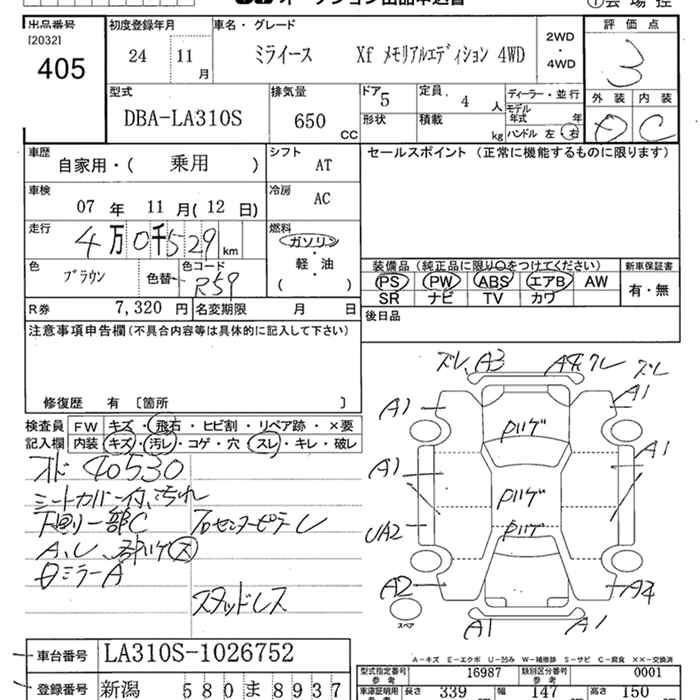 オークション出品申込書
出品番号 初度登録年月 車名・グレード 評価点
[2032] 24 11月 ミライース Xf メモリアルエディション 4WD 2WD・4WD 3
405
型式 排気量 ドア 5 定員 4人 ディーラー・並行 外装 内装
DBA-LA310S 650 CC 形状 積載 kg モデル年式 年 C
ハンドル 左 右
車歴 シフト セールスポイント (正常に機能するものに限ります)
自家用・( 乗用 ) AT
車検 冷房
07年 11月(12日) AC
走行 燃料
4万0千529km ガソリン
色 色コード 軽・油 装備品 (純正品に限り○をつけてください) 新車保証書
ブラウン 色替 R59 ( ) PS PW ABS エアB AW 有・無
SR ナビ TV カワ
R券 7,320円 名変期限 月 日 後日品
注意事項申告欄 (不具合内容等は具体的に記入して下さい)
修復歴 有 〔箇所 〕
検査員 FW キズ・飛石・ヒビ割・リペア跡・×要
記入欄 内装 キズ・汚レ・コゲ・穴・スレ・キレ・破レ
40530
シートカバー付、汚れ
下回り一部C
A、レ
ミラーA
スタッドレス
ズレ、A3 A4 ズレ
A1 A1
ハゲ
A1 A1
ハゲ
ハゲ
UA2
A2 A4
スペア
A1 A1
A-キズ E-エクボ U-凹み W-補修跡 S-サビ C-腐食 ××-交換済
車台番号 LA310S-1026752
型式指定番号 参考 16987 類別区分番号 参考 0001
登録番号 新潟 580ま8937
車庫証明用 参考 長さ 339 幅 147 高さ 150